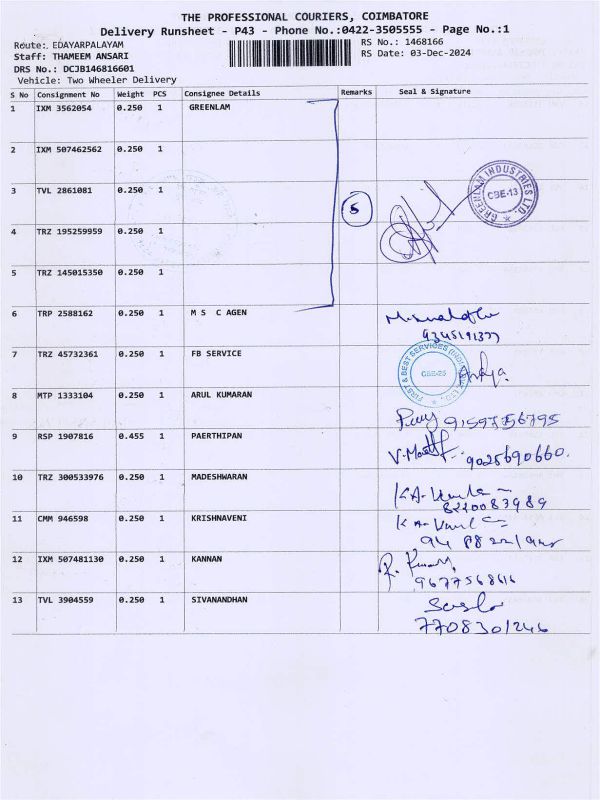 THE PROFESSIONAL COURIERS, COIMBATORE
Delivery Runsheet - P43 - Phone No.:0422-3505555 - Page No.:1
Route: EDAYARPALAYAM RS No.: 1468166
Staff: THAMEEM ANSARI RS Date: 03-Dec-2024
DRS No.: DCJB146816601
Vehicle: Two Wheeler Delivery
S No Consignment No Weight PCS Consignee Details Remarks Seal & Signature
1 IXM 3562054 0.250 1 GREENLAM
2 IXM 507462562 0.250 1
3 TVL 2861081 0.250 1
5
GREENLAM INDUSTRIES LTD. CBE-13
4 TRZ 195259959 0.250 1
5 TRZ 145015350 0.250 1
6 TRP 2588162 0.250 1 M S C AGEN
9345191377
7 TRZ 45732361 0.250 1 FB SERVICE
FIRST & BEST SERVICES CBE-25
8 MTP 1333104 0.250 1 ARUL KUMARAN
9159756795
9 RSP 1907816 0.455 1 PAERTHIPAN
9025690660.
10 TRZ 300533976 0.250 1 MADESHWARAN
8220083989
11 CMM 946598 0.250 1 KRISHNAVENI
12 IXM 507481130 0.250 1 KANNAN
9677568616
13 TVL 3904559 0.250 1 SIVANANDHAN
7708301246